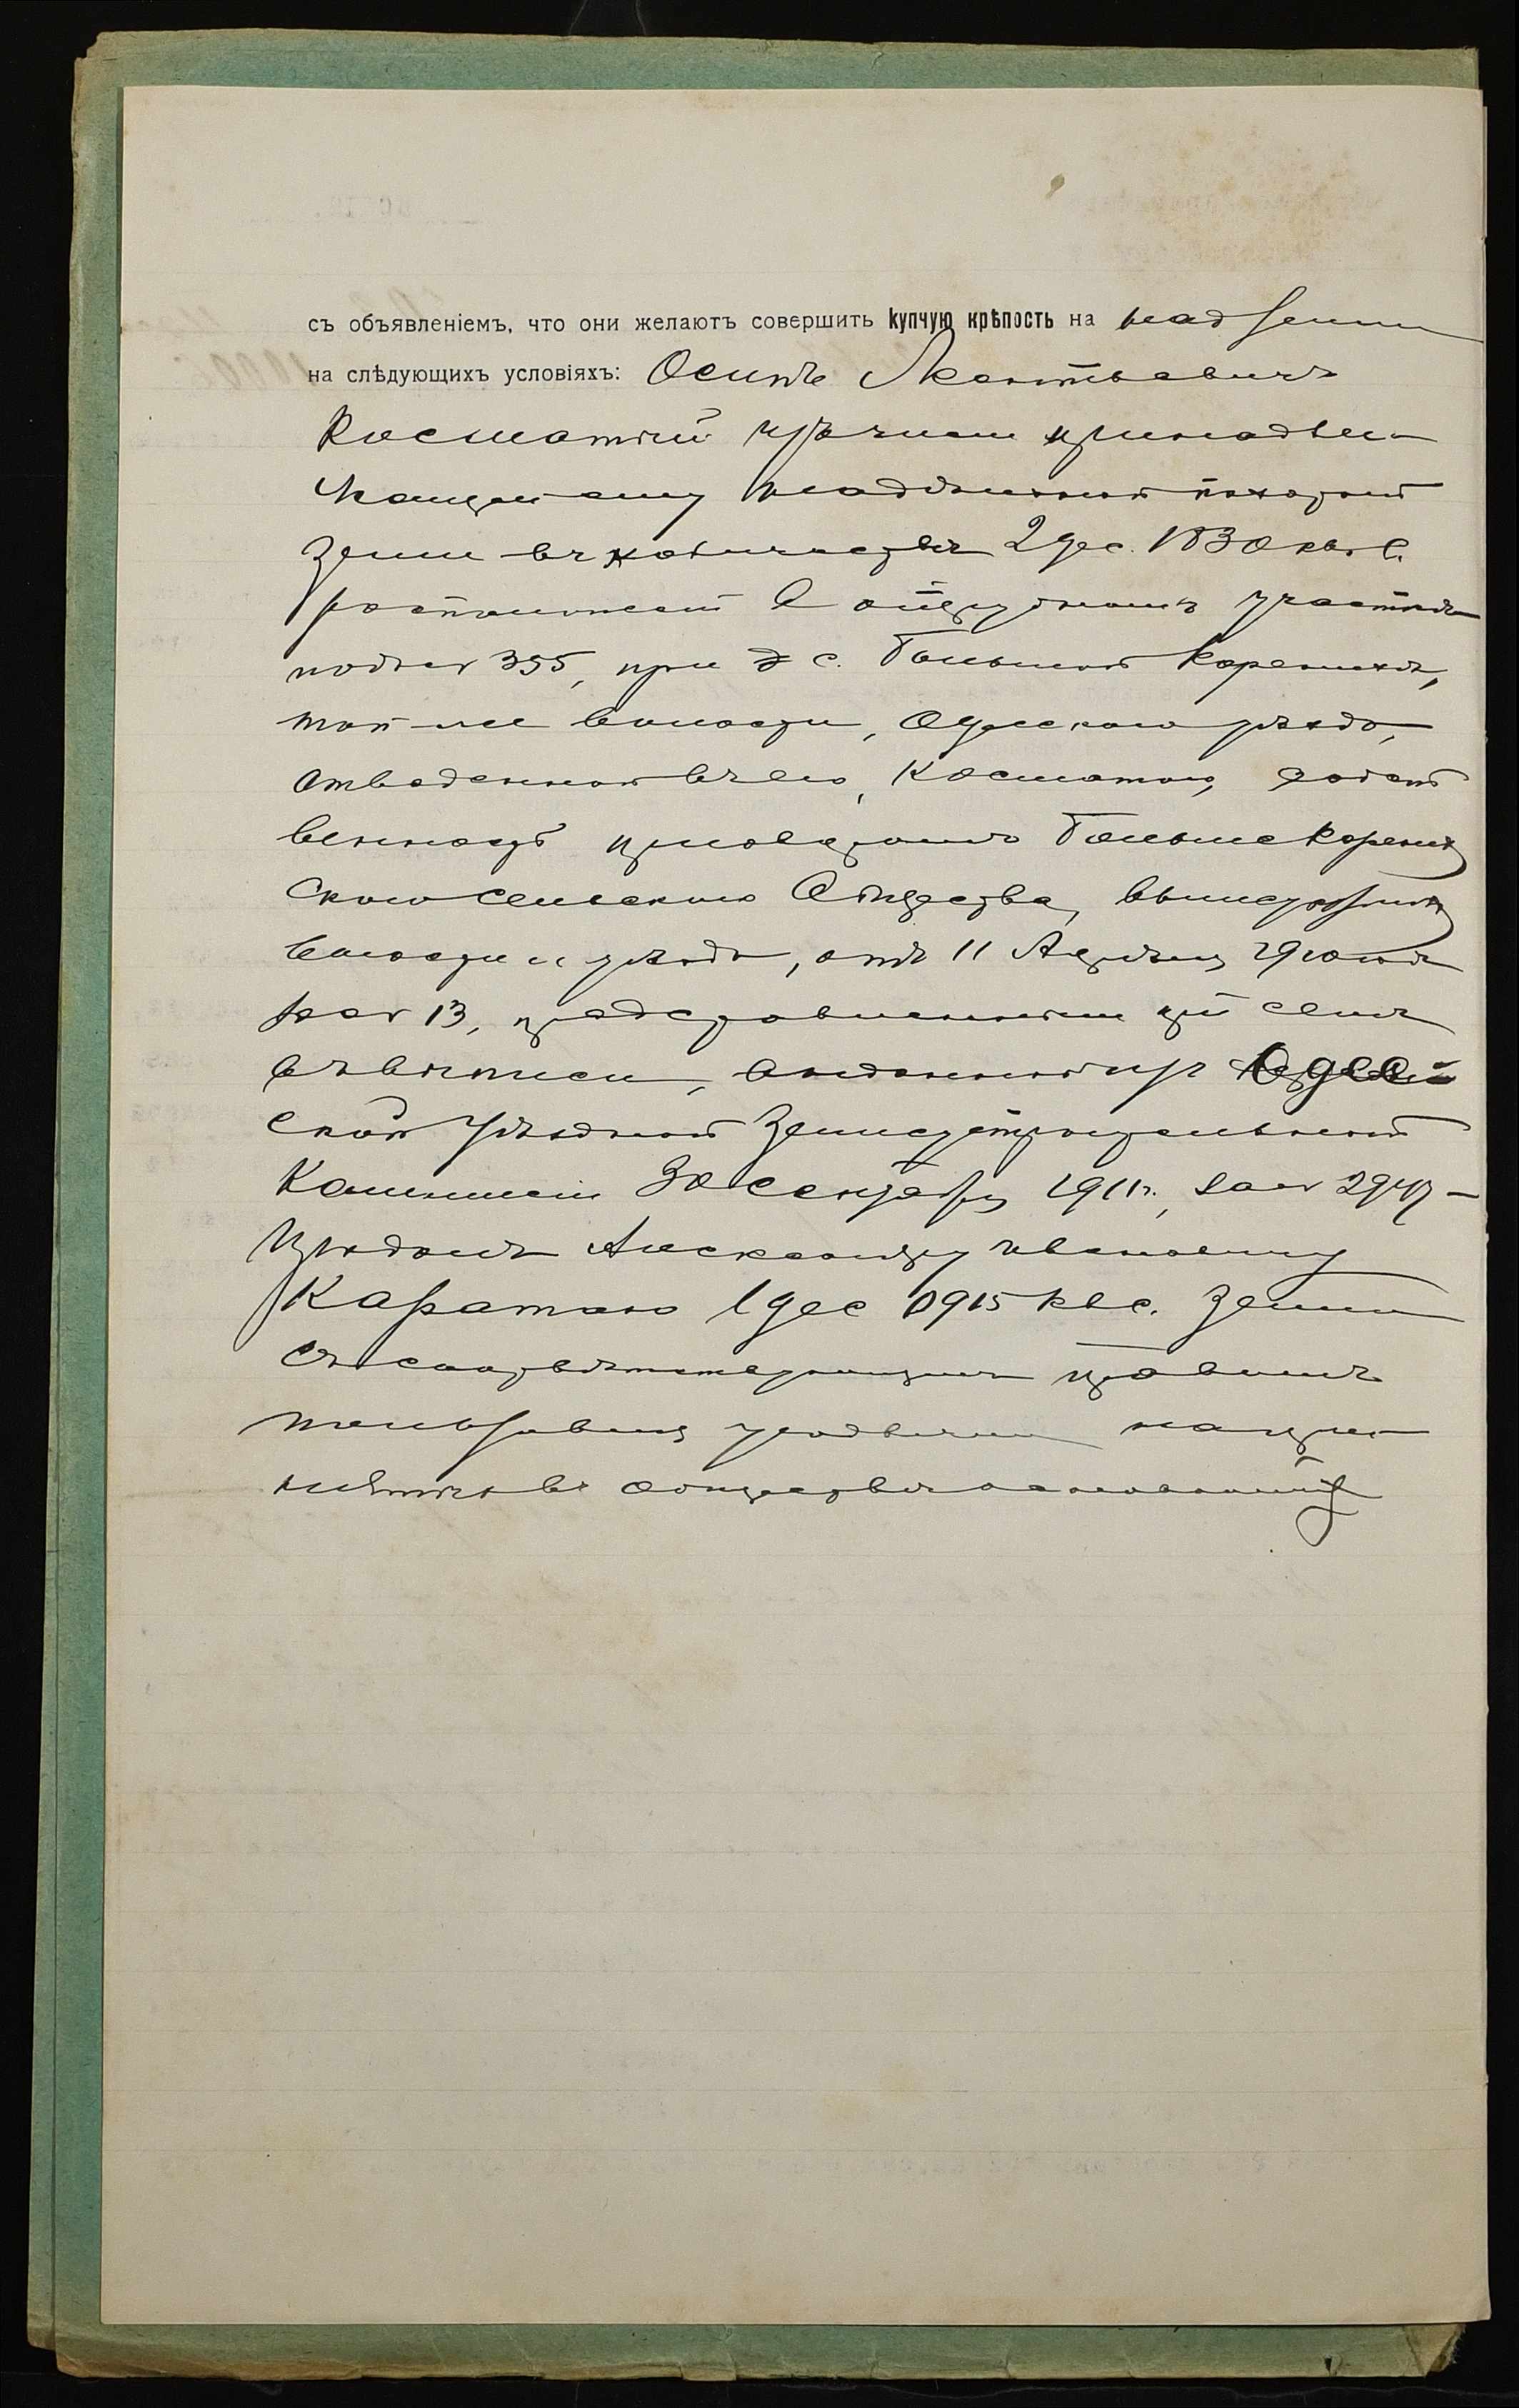 съ объявленіемъ, что они желаютъ совершить купчую крѣпость на над земли
на слѣдующихъ условіяхъ: Осипъ Леонтьевичъ
Косматый изъ принадле-
жащей ему надѣльной пахатной
земли въ количествѣ 2 дес. 1830 кв. с.
расположенной в отрубномъ участкѣ
подъ № 355, при с. Большой Коренихѣ,
той же волости, Одесскаго уѣзда,
отведенной въ его, Косматаго, собст
венность приговоромъ Большекорених
скаго сельскаго Общества, вышеуказанной
волости и уѣзда, отъ 11 Апрѣля
за № 13, представленнымъ при семъ
въ выписи, выданной изъ Одес
ской Уѣздной Землеустроительной
Комиссіи 30 Сентября 1911 г., за № 2947 -
продалъ Александру Ивановичу
1 дес 915 кв с. земли
съ соотвѣтствующимъ правомъ
пользованія угодьями
въ обществѣ